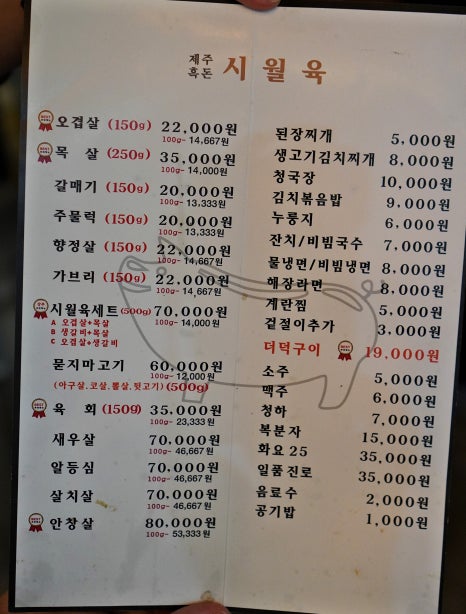 제주
흑돈
시월육
오겹살 (150g) 22,000원
100g- 14,667원
목 살 (250g) 35,000원
100g- 14,000원
갈매기 (150g) 20,000원
100g- 13,333원
주물럭 (150g) 20,000원
100g- 13,333원
향정살 (150g) 22,000원
100g- 14,667원
가브리 (150g) 22,000원
100g- 14,667원
시월육세트 (500g) 70,000원
100g- 14,000원
A 오겹살+목살
B 생갈비+목살
C 오겹살+생갈비
묻지마고기 60,000원
100g- 12,000원
(아구살.코살.뽈살.뒷고기) (500g)
육 회 (1509) 35,000원
100g- 23,333원
새우살 70,000원
100g- 46,667원
알등심 70,000원
100g- 46,667원
살치살 70,000원
100g- 46,667원
안창살 80,000원
100g- 53,333원
된장찌개 5,000원
생고기김치찌개 8,000원
청국장 10,000원
김치볶음밥 9,000원
누룽지 6,000원
잔치/비빔국수 7,000원
물냉면/비빔냉면 8,000원
해장라면 8,000원
계란찜 5,000원
겉절이추가 3,000원
더덕구이 19,000원
소주 5,000원
맥주 6,000원
청하 7,000원
복분자 15,000원
화요25 35,000원
일품진로 35,000원
음료수 2,000원
공기밥 1,000원